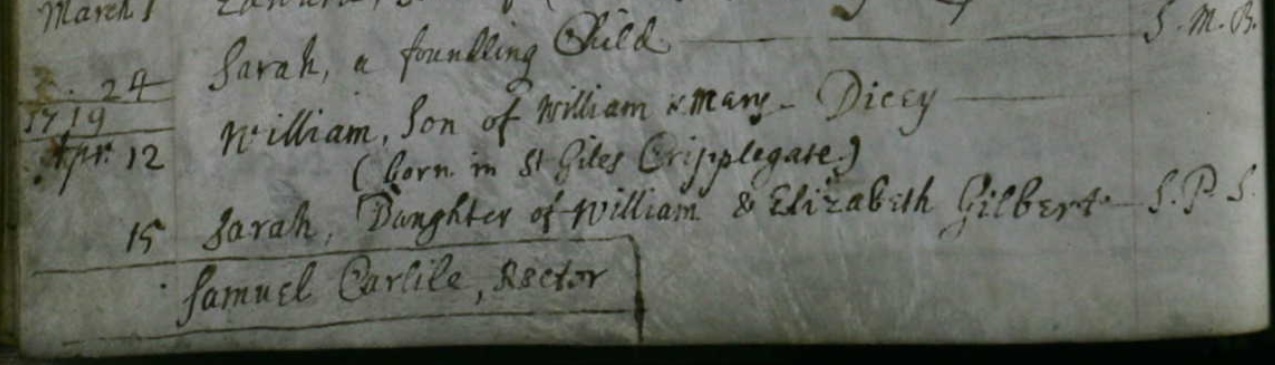 March 1
24 Sarah, a foundling Child S. M. B.
1719
Apr. 12 William, Son of William & Mary Dicey
(born in St Giles Cripplegate.)
15 Sarah, Daughter of William & Elizabeth Gilbert S. P. S.
Samuel Carlile, Rector